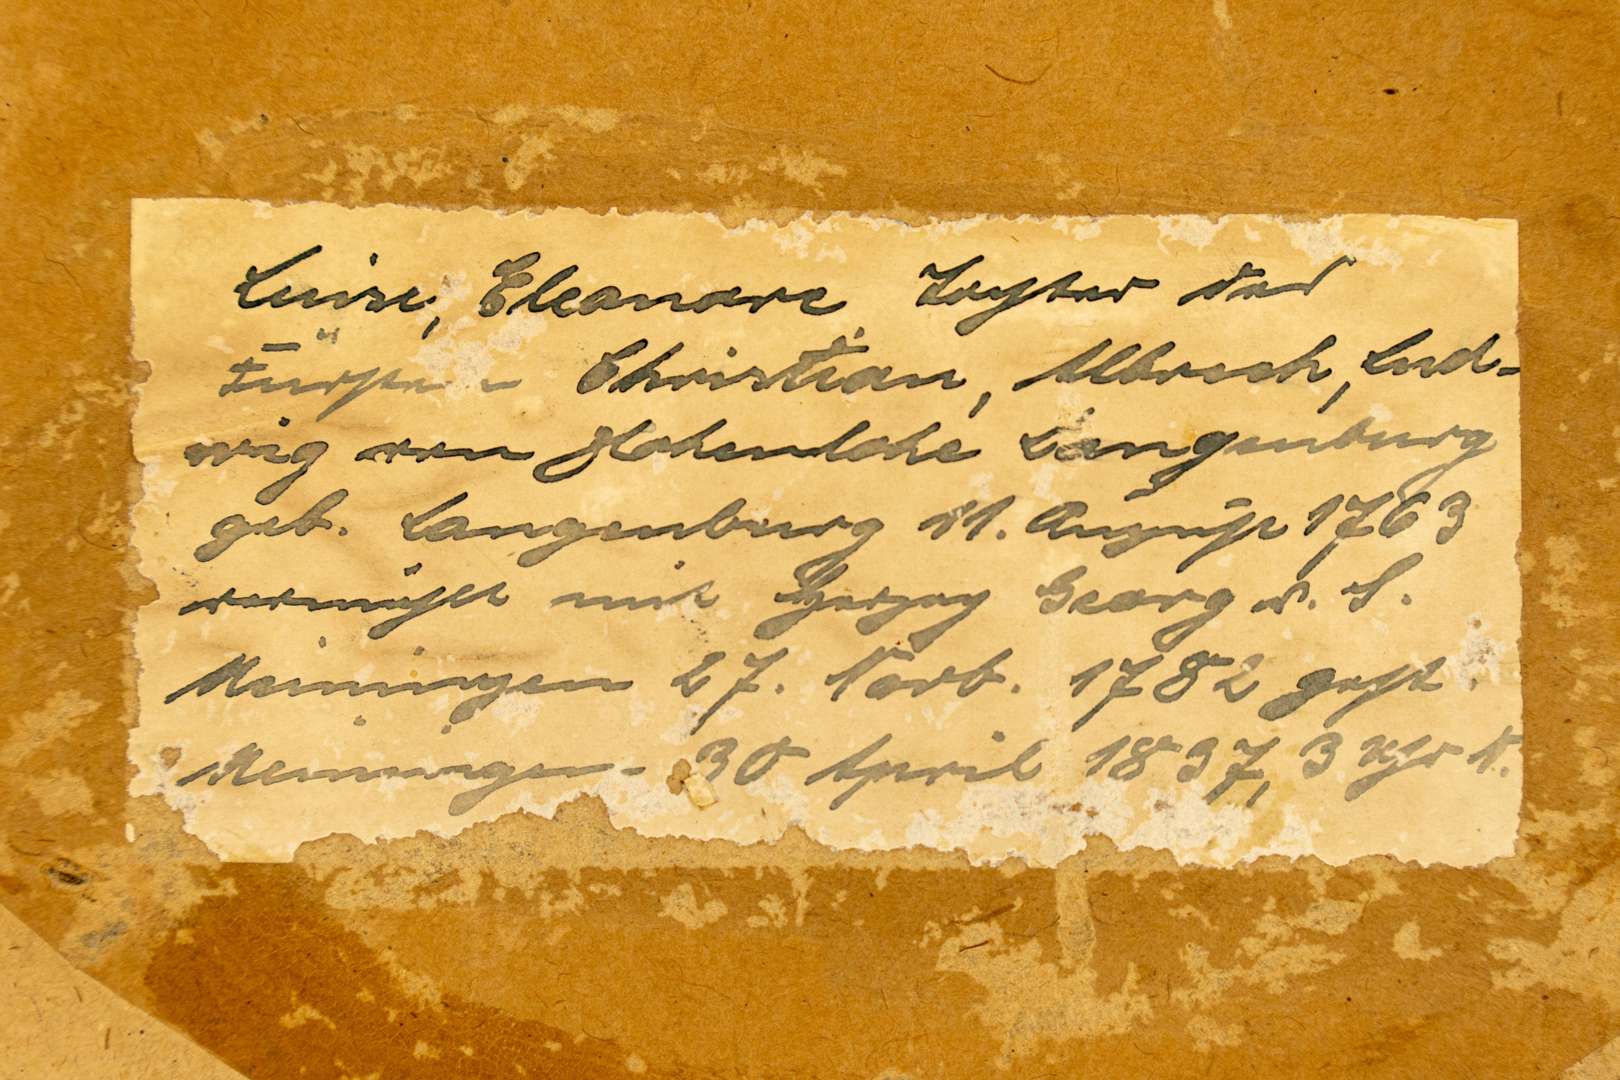 Luise, Eleonore Tochter des
Fürsten Christian, Albrech, Lud-
wig von Hohenlohe Langenburg
geb. Langenburg 11. August 1763
vermählt mit Herzog Georg v. S.
Meiningen 27. Novb. 1782 gest.
Meiningen 30 April 1837, 3 Uhr N.